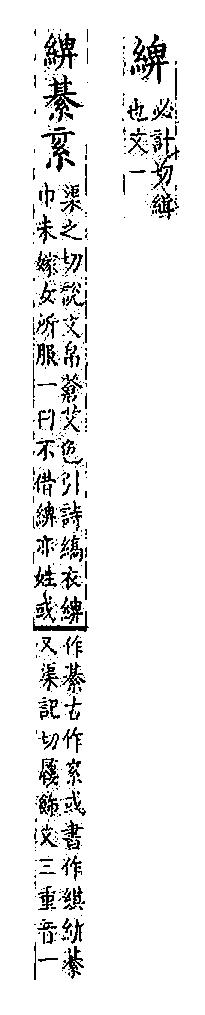 綼
必計切緝
也文一
綥綦
渠之切說文帛蒼艾色引詩縞衣綥
巾未嫁女所服一曰不借綥亦姓或
作綦古作或書作綨綦
又渠記切屨飾文三重音一